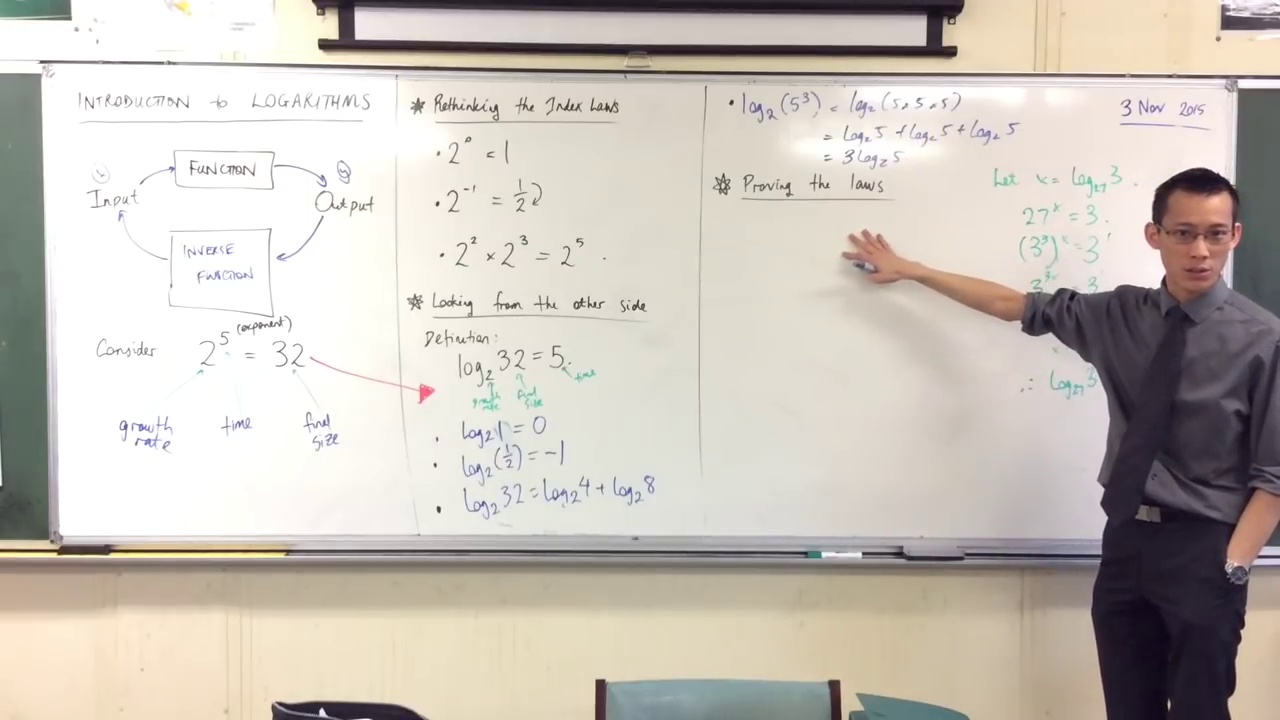 INTRODUCTION to LOGARITHMS
FUNCTION
Input
Output
INVERSE
FUNCTION
(exponent)
Consider 2⁵ = 32
growth rate
time
final size
✡ Rethinking the Index Laws
• 2⁰ = 1
• 2⁻¹ = ½
• 2² × 2³ = 2⁵ .
✡ Looking from the other side
Definition:
log₂ 32 = 5.
growth rate
final size
time
• log₂ 1 = 0
• log₂ (½) = -1
• log₂ 32 = log₂ 4 + log₂ 8
• log₂ (5³) = log₂ (5×5×5)
= log₂ 5 + log₂ 5 + log₂ 5
= 3 log₂ 5
✡ Proving the laws
3 Nov 2015
Let x = log₂₇ 3 .
27ˣ = 3 .
(3³)ˣ = 3¹
3³ˣ = 3
∴ log₂₇ 3